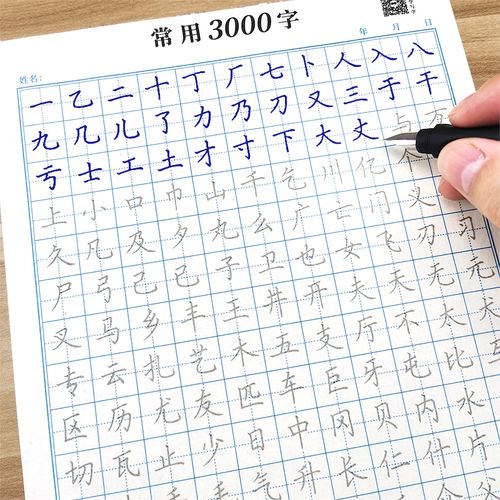 常用3000字
姓名: 年 月 日
一乙二十丁厂七卜人入八
九几儿了力乃刀又三于干
亏士工土才寸下大丈与万
上小口巾山千乞川亿个
久凡及夕丸么广亡门义
尸弓己已子卫也女飞刃习
叉马乡丰王井开夫天无元
专云扎艺木五支厅不太犬
区历尤友匹车巨牙屯比互
切瓦止少日中冈贝内水
手气升长仁什片